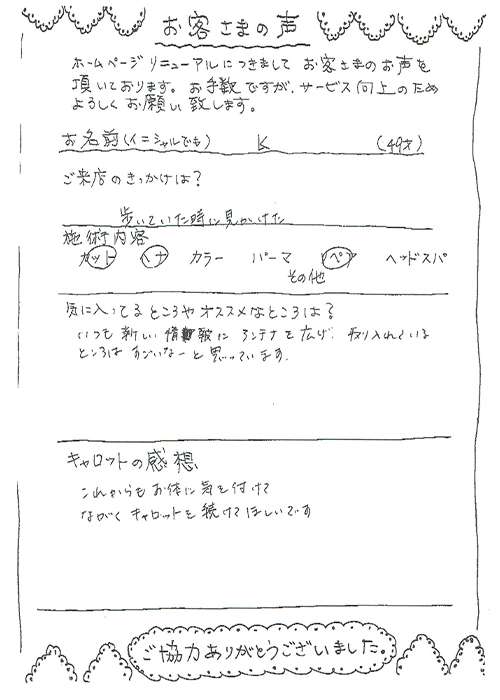 お客さまの声
ホームページリニューアルにつきまして お客さまのお声を
頂いております。お手数ですが、サービス向上のため
よろしくお願い致します。
お名前(イニシャルでも) K (49才)
ご来店のきっかけは?
歩いていた時に見かけた
施術内容
カット ヘナ カラー パーマ ヘッドスパ
その他
気に入ってるところやオススメなところは?
いつも新しい情報にアンテナを広げ、取り入れている
ところはすごいなーと思っています。
キャロットの感想
これからもお体に気を付けて
ながくキャロットを続けてほしいです
ご協力ありがとうございました。